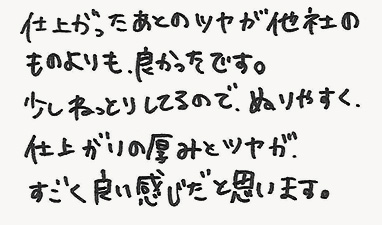 仕上がったあとのツヤが他社の
ものよりも、良かったです。
少しねっとりしてるので、ぬりやすく、
仕上がりの厚みとツヤが、
すごく良い感じだと思います。